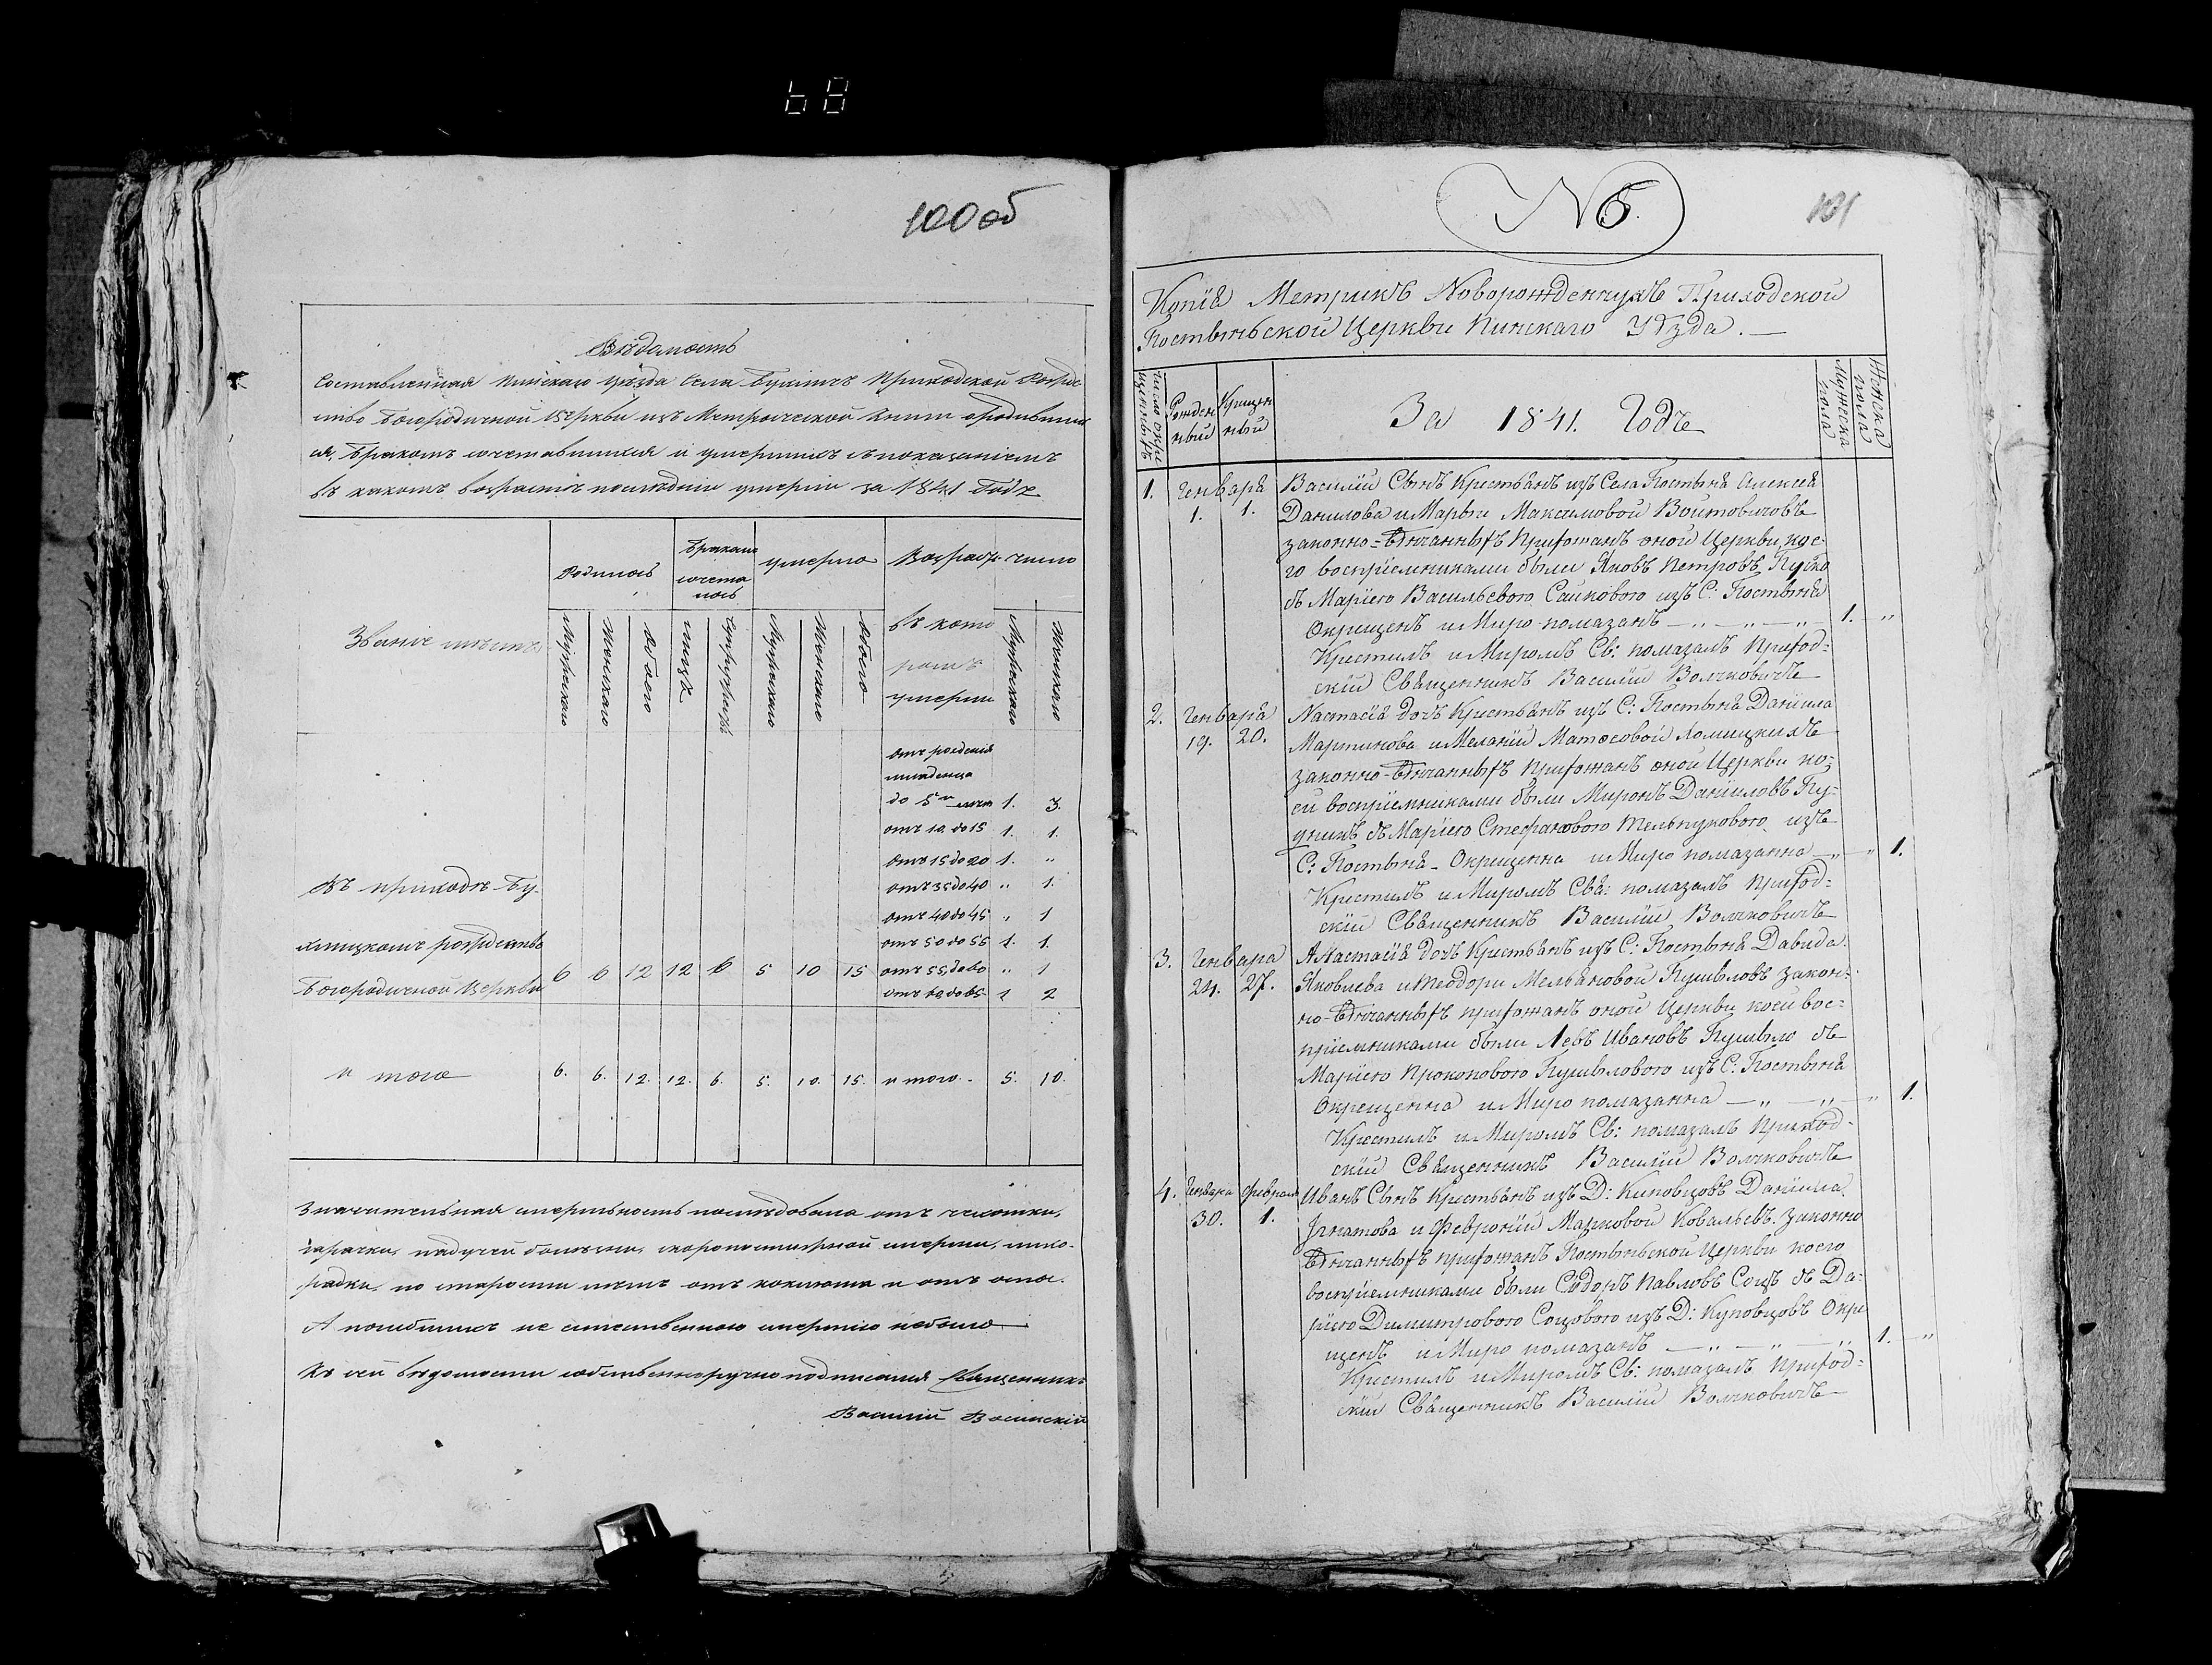 68
100 об
Вѣдомость
Составленная Пинскаго уѣзда Села Приходской Рожде
ство Богородичной Церкви изъ Метрической Книги о родивших
ся, бракомъ сочетавшихся и умершихъ съ показаніемъ
въ какомъ возрастѣ послѣдніи умерли за 1841 Годъ
Званіе мѣстъ
Родилось
Бракомъ
сочета
лось
умерло
Возрастъ
число
Мужескаго
Женскаго
Обоего
лицъ
супружествъ
Мужескаго
Женскаго
Обоего
въ кото
ромъ
умерли
Мужескаго
Женскаго
отъ рожденія
младенца
до 5ти лѣтъ 1. 3.
отъ 10 до 15 1. 1.
отъ 15 до 20 1. "
отъ 35 до 40 " 1.
отъ 40 до 45 " 1
отъ 50 до 55 1. 1.
отъ 55 до 60 " 1
отъ 60 до 65 1 2
Въ приходѣ Бу-
хлицкомъ рождество
Богородичной Церкви 6 6 12 12 6 5 10 15
и того 6. 6. 12. 12. 6. 5. 10. 15. и того. 5. 10.
Значительная смертность послѣдовала отъ чахотки,
горячки, падучей болѣзни, скоропостижной смерти, лихо-
радки, по старости лѣтъ отъ коклюша и отъ оспы.
А погибшихъ не естественною смертію небыло
Къ сей вѣдомости собственноручно подписался Священникъ
Василій
№ 6.
101
Копія Метрикъ Новорожденныхъ Приходской
Постыньской Церкви Пинскаго Уѣзда.
Рожден
ный
Крещен
ный
За 1841. Годъ
Мужеска
пола
Женска
пола
1. Генваря 1. 1. Василій Сынъ Крестьянъ изъ Села Постыня Алексѣя
Данилова и Марьи Максимовой Войтовичовъ
законно-вѣнчанныхъ Прихожанъ оной Церкви, кое-
го воспріемниками были Яковъ Петровъ
съ Маріею Васильевою изъ С: Постыня
Окрещенъ и Миро помазанъ — " — " — " — 1. "
Крестилъ и Миромъ Св: помазалъ Приход-
скій Священникъ Василій Волчковичъ
2. Генваря 19. 20. Настасія дочь Крестьянъ изъ С: Постыня Даніила
Мартинова и Меланіи Матѳеовой Хомицкихъ
законно-вѣнчанныхъ Прихожанъ оной Церкви ко-
ей воспріемниками были Миронъ Даніиловъ
съ Маріею Стефановою изъ
С: Постыня - Окрещенна и Миро помазанна — " " 1.
Крестилъ и Миромъ Свя: помазалъ Приход-
скій Священникъ Василій Волчковичъ
3. Генваря 24. 27. Анастасія дочь Крестьянъ изъ С: Постыня Давида
Яковлева и Теодоры закон-
но-вѣнчанныхъ прихожанъ оной Церкви коей вос-
пріемниками были Левъ Ивановъ съ
Маріею Прокоповою изъ С: Постыня
Окрещенна и Миро помазанна — " — " — " 1.
Крестилъ и Миромъ Св: помазалъ Приход-
скій Священникъ Василій Волчковичъ
4. Генваря 30. Февраля 1. Иванъ Сынъ Крестьянъ изъ Д: Даніила
Игнатова и Февроніи Марковой законно
вѣнчанныхъ прихожанъ Постыньской Церкви коего
воспріемниками были Сидоръ Павловъ съ Да-
ріею Димитровою изъ Д: Куповцовъ Окре
щенъ и Миро помазанъ — " — " — " 1. — "
Крестилъ и Миромъ Св: помазалъ Приход-
скій Священникъ Василій Волчковичъ